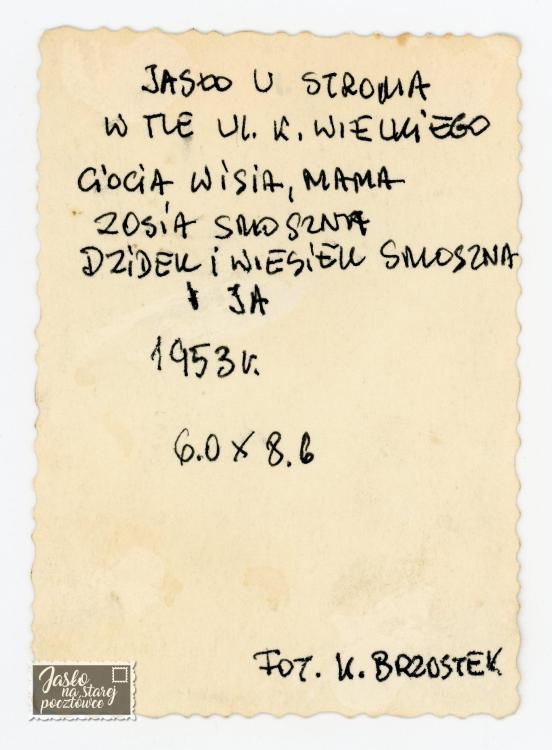 JASŁO U STROMA
W TLE UL. K. WIELKIEGO
CIOCIA WISIA, MAMA
ZOSIA SMOSZNA
DZIDEK I WIESIEK SMOSZNA
I JA
1953 r.
6.0 x 8.6
FOT. K. BRZOSTEK
Jasło
na starej
pocztówce